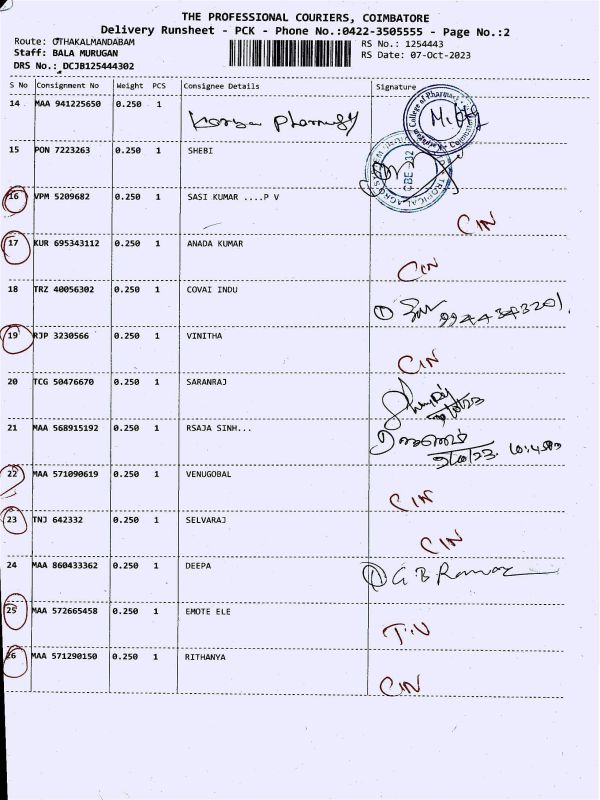 THE PROFESSIONAL COURIERS, COIMBATORE
Delivery Runsheet - PCK - Phone No.:0422-3505555 - Page No.:2
Route: OTHAKALMANDABAM
RS No.: 1254443
Staff: BALA MURUGAN
RS Date: 07-Oct-2023
DRS No.: DCJB125444302
S No Consignment No Weight PCS Consignee Details Signature
14 MAA 941225650 0.250 1
15 PON 7223263 0.250 1 SHEBI
16 VPM 5209682 0.250 1 SASI KUMAR ....P V
CIN
17 KUR 695343112 0.250 1 ANADA KUMAR
CIN
18 TRZ 40056302 0.250 1 COVAI INDU
19 RJP 3230566 0.250 1 VINITHA
CIN
20 TCG 50476670 0.250 1 SARANRAJ
21 MAA 568915192 0.250 1 RSAJA SINH...
22 MAA 571090619 0.250 1 VENUGOBAL
CIN
23 TNJ 642332 0.250 1 SELVARAJ
CIN
24 MAA 860433362 0.250 1 DEEPA
25 MAA 572665458 0.250 1 EMOTE ELE
26 MAA 571290150 0.250 1 RITHANYA
CIN